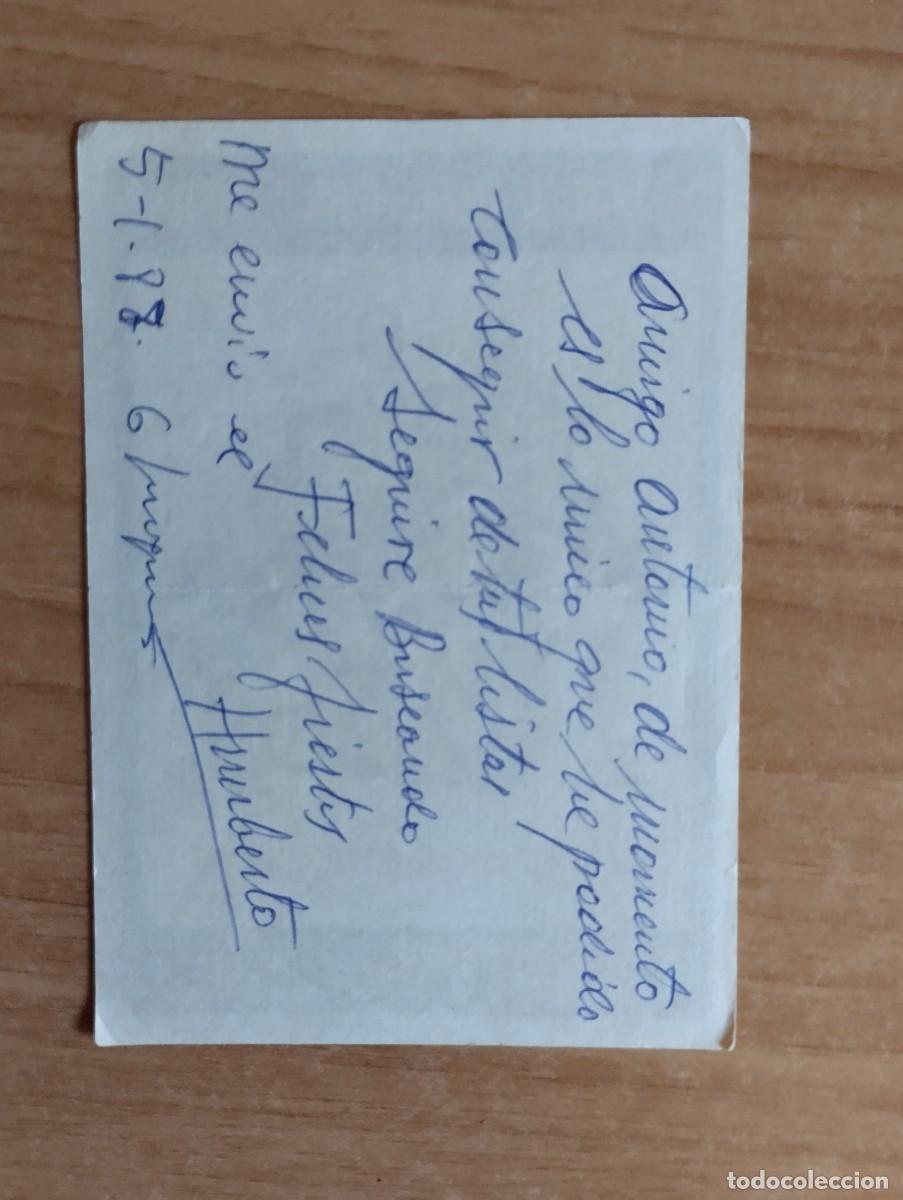 Amigo Antonio, de momento
es lo unico que he podido
conseguir de tus listas
Seguire Buscando
Felices fiestas
Humberto
me envio el
5-1.87. 6
todocoleccion